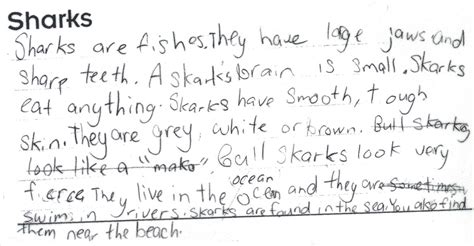 Sharks
Sharks are fishes. They have lage jaws and
sharp teeth. A skark's brain is small. Skarks
eat anything. Skarks have smooth, tough
skin. They are grey, white or brown. Bull skarks
look like a "mako" Bull skarks look very
ocean
fierce They live in the ocean and they are sometimes
swim in rivers. skarks are found in the sea. You also find
them near the beach.